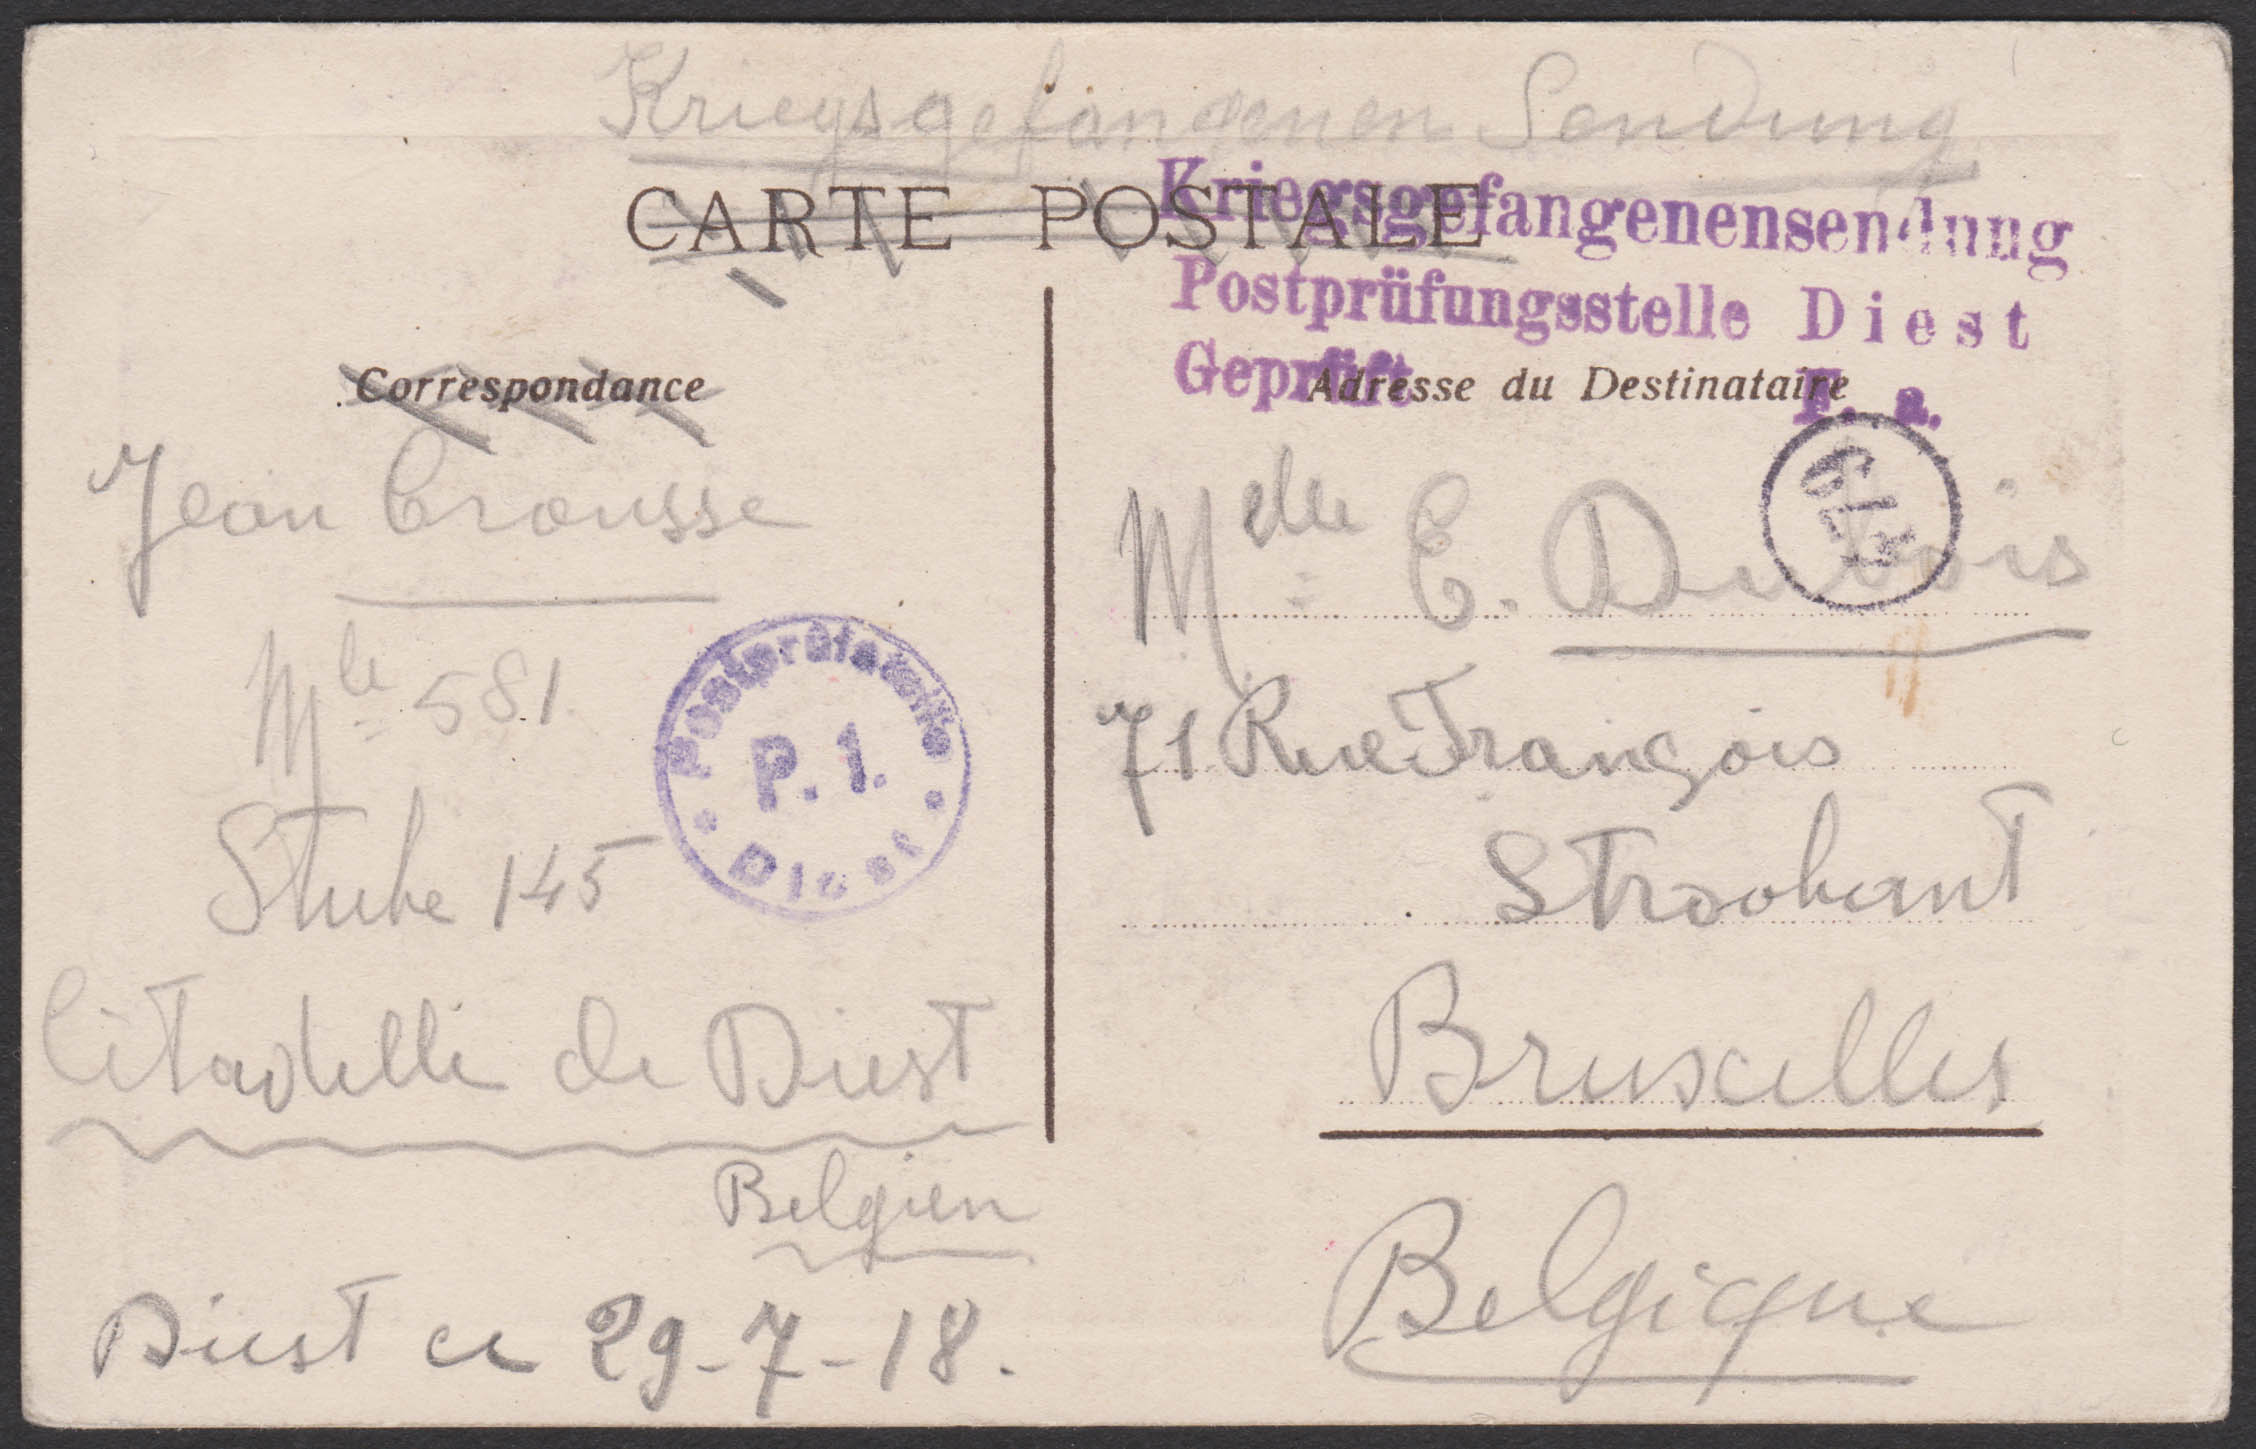 Kriegsgefangenen Sendung
CARTE POSTALE
Kriegsgefangenensendung
Postprüfungsstelle Diest
Geprüft
F. a.
Correspondance
Adresse du Destinataire
Jean Crousse
Mle 581
Stube 145
Citadelle de Diest
Belgien
Diest ce 29-7-18.
Postprüfstelle
P. 1.
Diest
Melle E. Dubois
71 Rue François
Stroobant
Bruxelles
Belgique